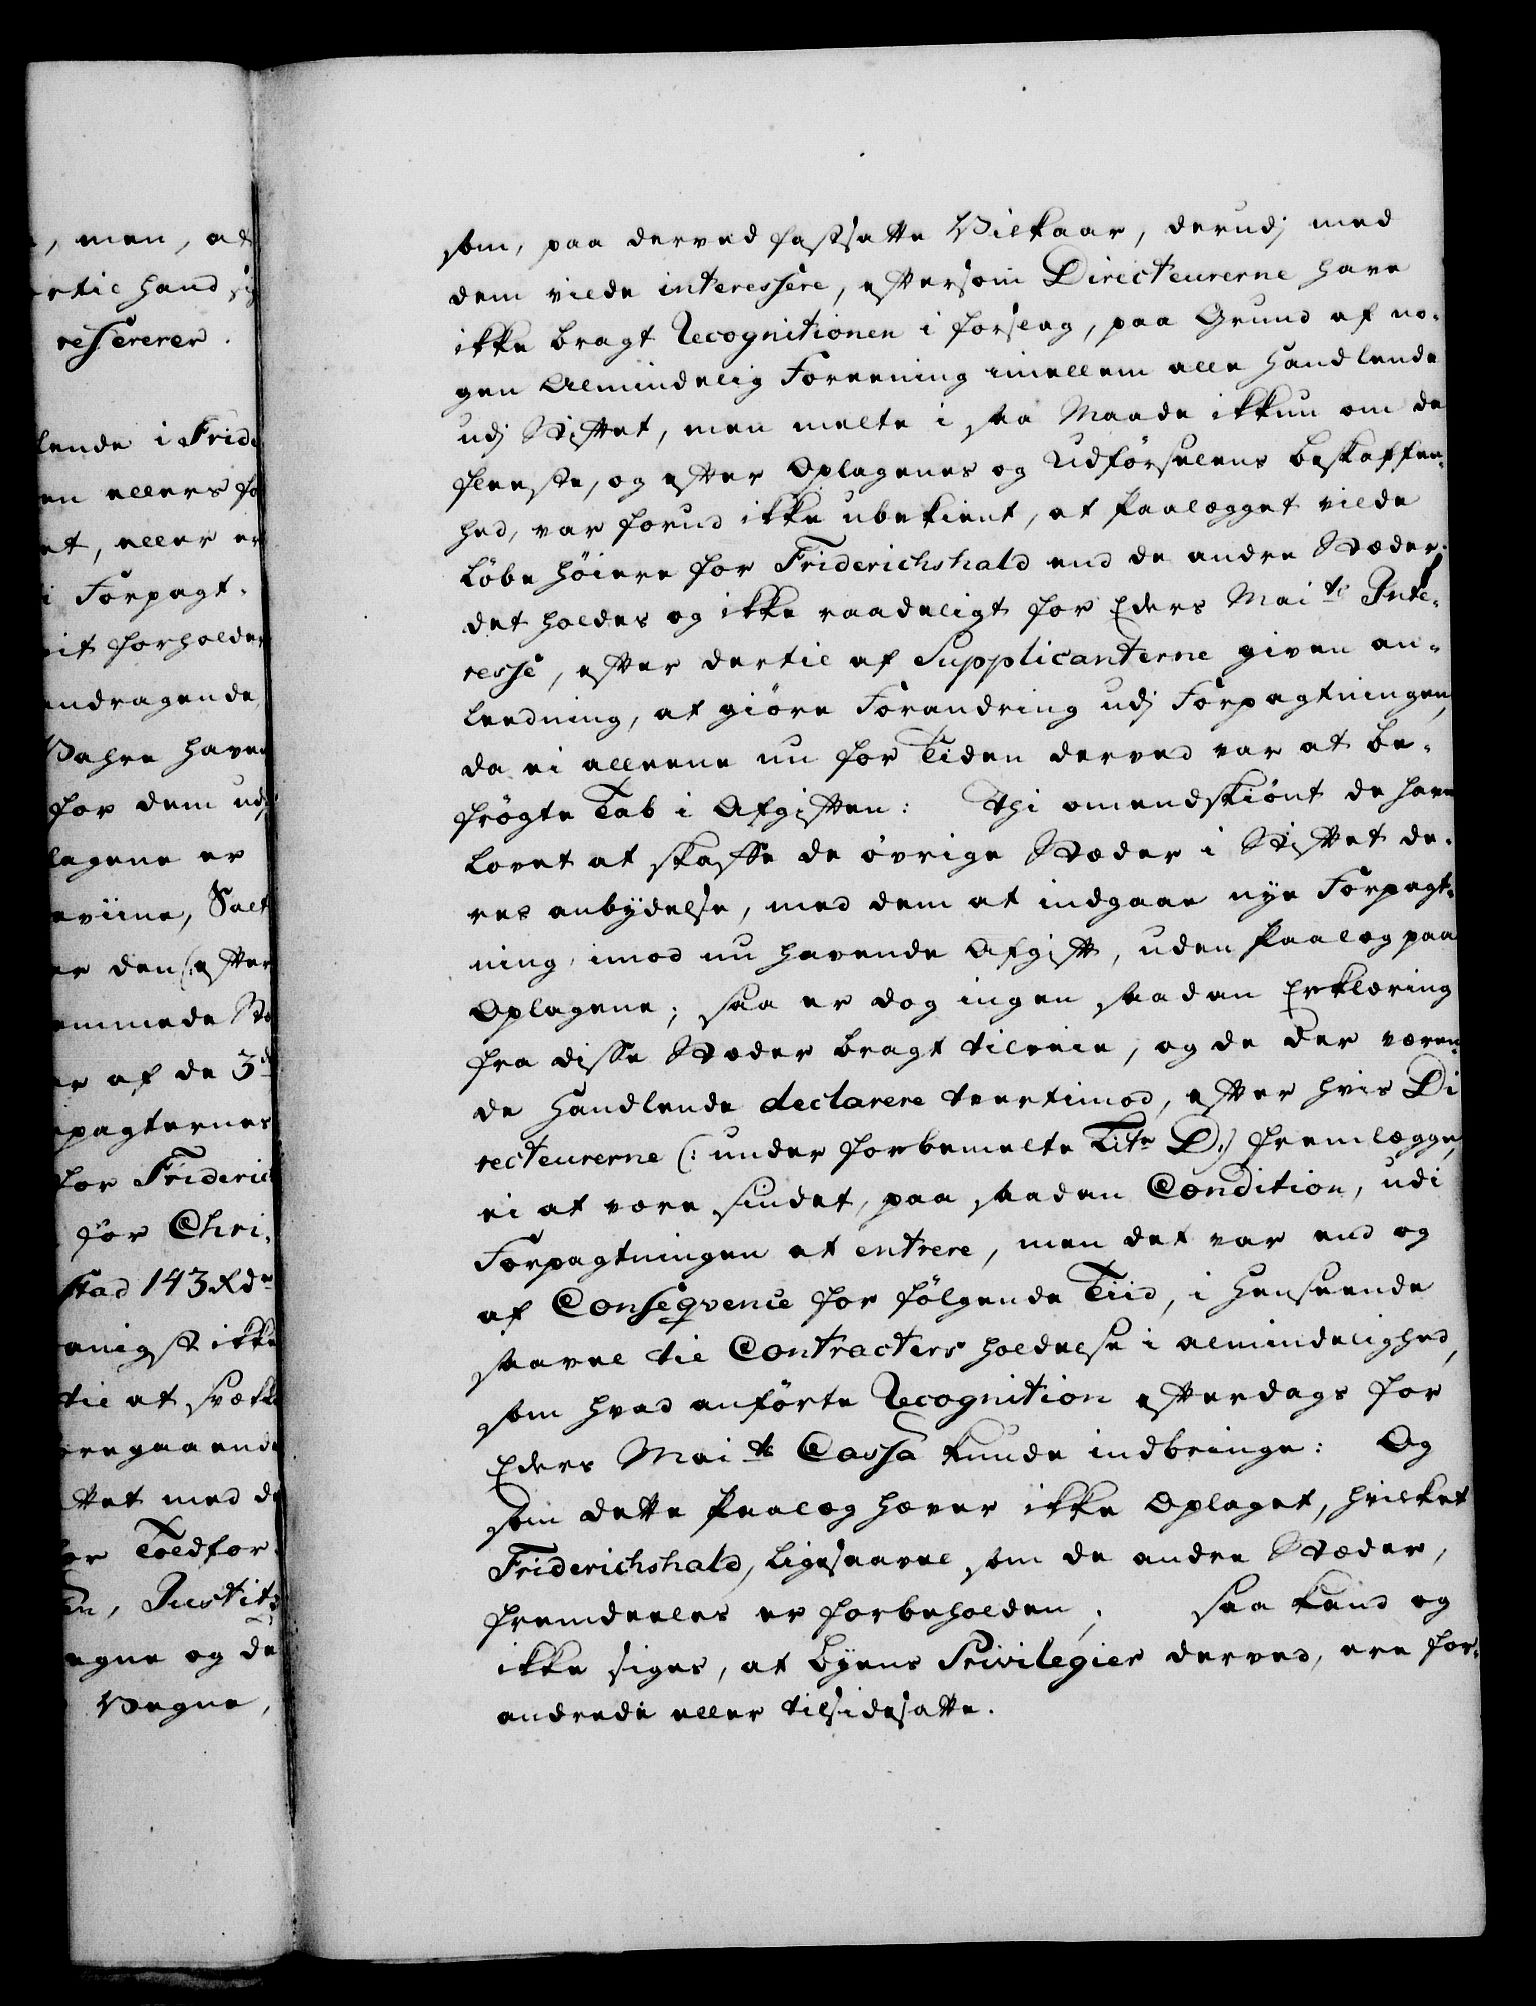 , men, at
ertil hand sig
resserer.
lende i Frid
en ellers fo
et, eller er
i Forpagt-
it forholder
ndragende,
Vahre haver
for dem udj
lagene er
eviine, Salt
er den (: efter
emmede Stæ
er af de 3de
pagternes
for Frideric
for Chri-
stad 143 Rdr
anigst ikke
til at svække
oregaaende
ttet med de
for Toldfor-
en, Justitz
egne og de
Vegne,
som, paa derved fastsatte Vilkaar, derudj med
dem vilde interessere, eftersom Directeurerne have
ikke bragt Recognitionen i forslag, paa Grund af no-
gen Almindelig Foreening imellem alle Handlende
udj Stiftet, men melte i saa Maade ikkun om de
fleeste, og efter Oplagenes og Udførselens beskaffen-
hed, var forud ikke ubekient, at Paalægget vilde
løbe høiere for Friderichshald end de andre Stæder.
det holdes og ikke raadeligt for Eders Maits Inte-
resse, efter dertil af Supplicanterne given an-
leedning, at giøre Forandring udj Forpagtningen,
da ei alleene nu for Tiden derved var at be-
frøgte Tab i Afgiften: Thi omendskiønt de have
lovet at skaffe de øvrige Stæder i Stiftet de-
res anbydelse, med dem at indgaae nye Forpagt-
ning, imod nu havende Afgift, uden Paalæg paa
Oplagene; saa er dog ingen saadan Erklæring
fra disse Stæder bragt tilveie, og de der væren-
de Handlende declarere tvertimod, efter hvis Di
recteurerne (: under forbemelte Litr D:) fremlægge,
ei at være sindet, paa saadan Condition, udi
Forpagtningen at entrere, men det var end og
af Conseqvence for følgende Tiid, i Henseende
saavel til Contracters holdelse i almindelighed,
som hvad anførte Recognition efterdags for
Eders Maits Cassa kunde indbringe: Og
som dette Paalæg hæver ikke Oplaget, hvilket
Friderichshald, ligesaavel som de andre Stæder,
fremdeeles er forbeholden; saa kand og
ikke siges, at byens Privilegier derved, ere for-
andrede eller tilsidesatte.